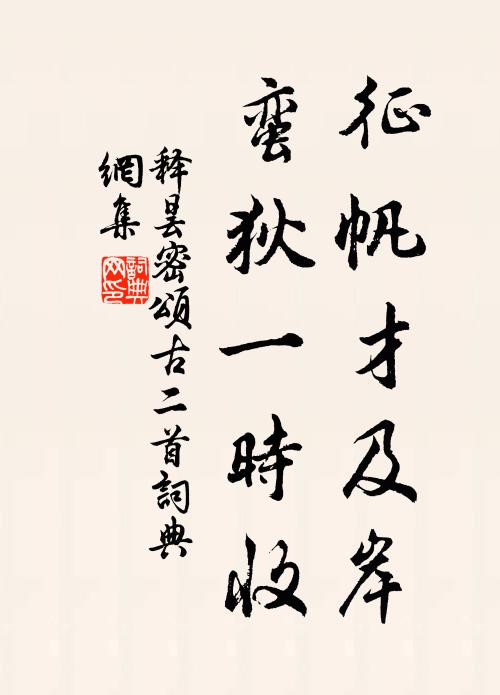 征帆才及岸
蛮狄一時收
释昙密頌古二首詞典
網集
詞典
网印